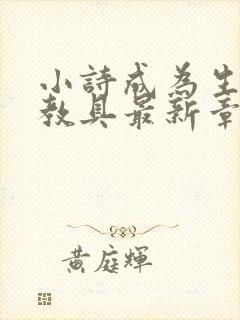 小詩成為生
教具最新章
黃庭輝